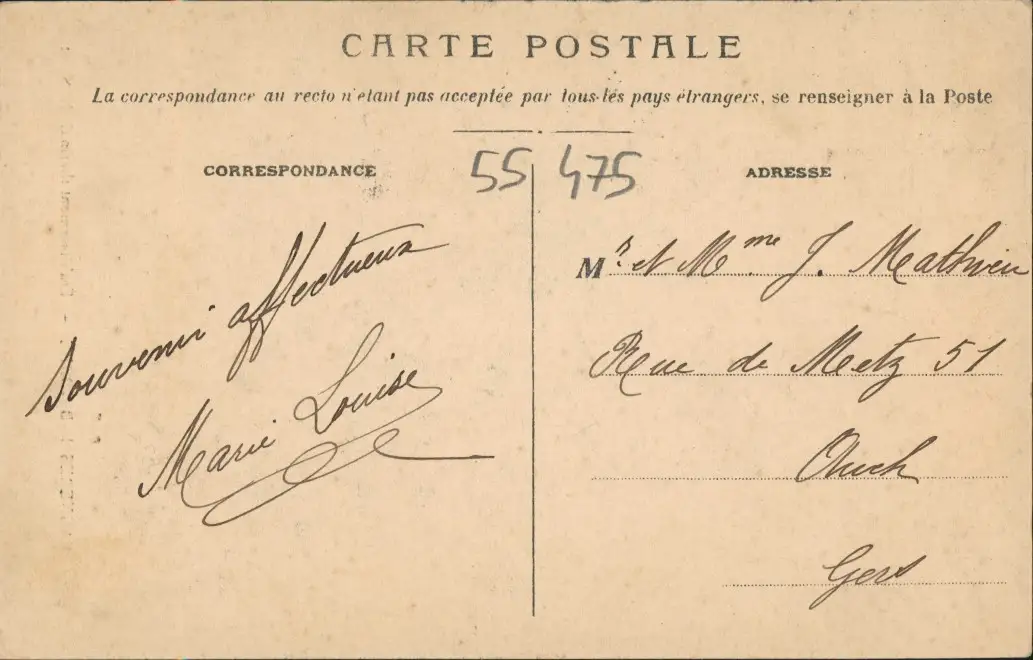 CARTE POSTALE
La correspondance au recto n'etant pas acceptée par tous les pays étrangers, se renseigner à la Poste
55 475
CORRESPONDANCE
Souvenir affectueux
Marie Louise
ADRESSE
Mr et Mme J. Mathieu
Rue de Metz 51
Auch
Gers